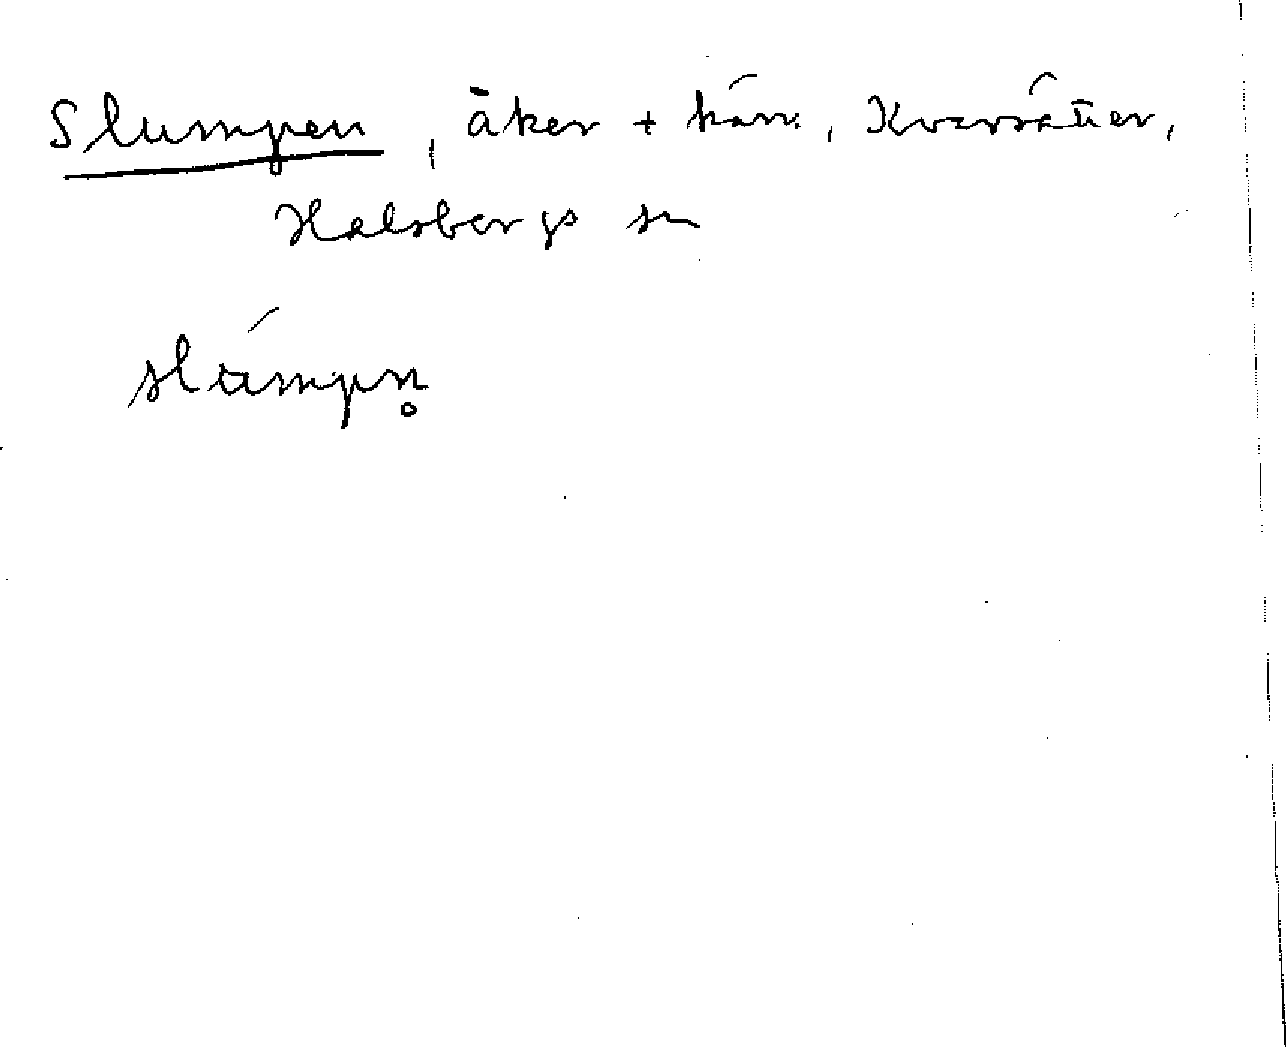 Slumpen, åker + kärr, Kvarsätter,
Halsbergs sn
slúmpn̥